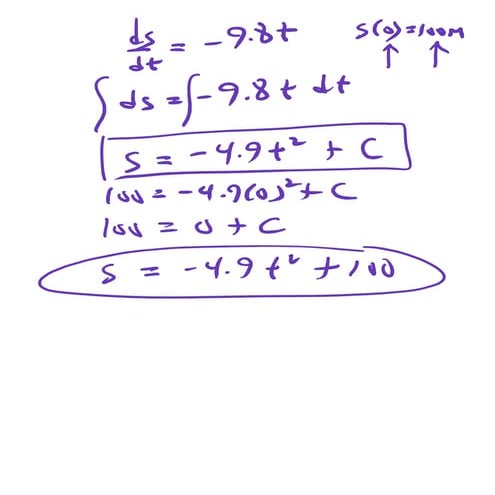 ds/dt = -9.8t   s(0)=100m
∫ds = ∫-9.8t dt
s = -4.9t² + C
100 = -4.9(0)² + C
100 = 0 + C
s = -4.9t² + 100